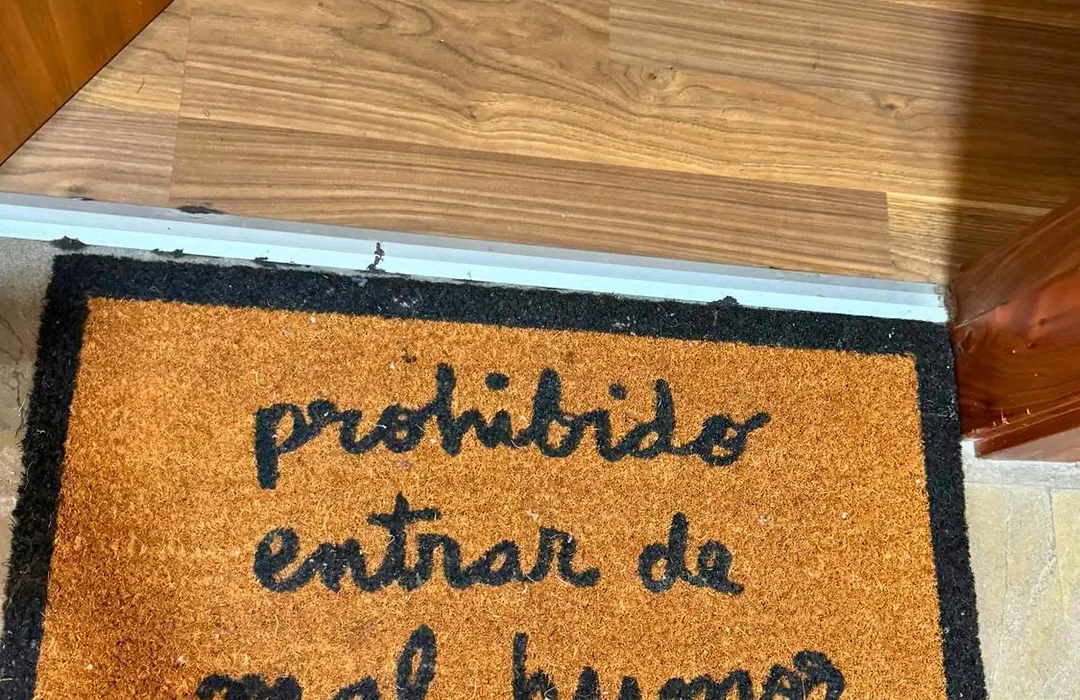 prohibido
entrar de
mal humor